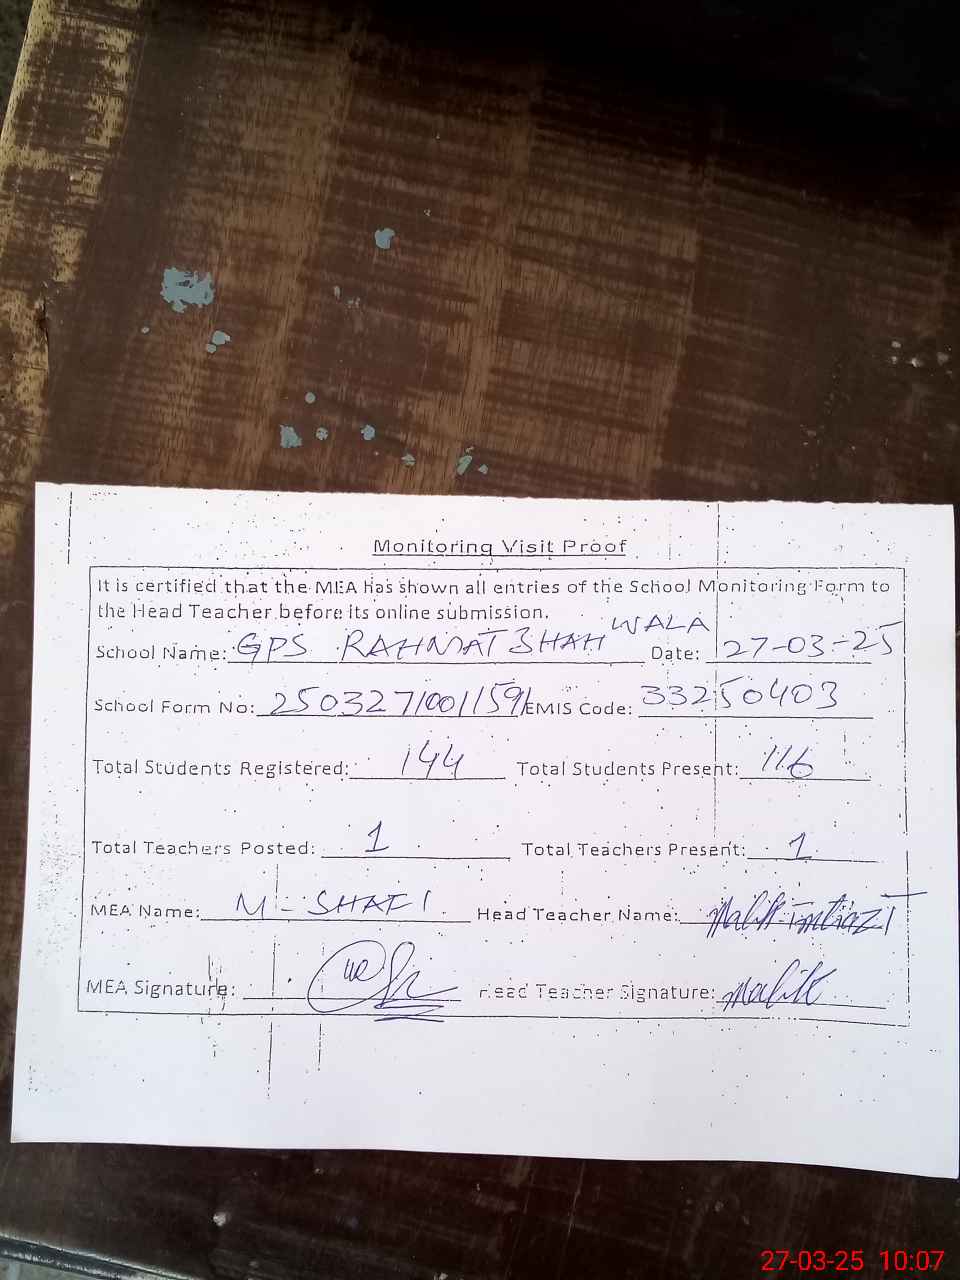 Monitoring Visit Proof
It is certified that the MEA has shown all entries of the School Monitoring Form to
the Head Teacher before its online submission.
School Name: GPS RAHMAT SHAH WALA Date: 27-03-25
School Form No: 25032710011591 EMIS Code: 33250403
Total Students Registered: 144 Total Students Present: 116
Total Teachers Posted: 1 Total Teachers Present: 1
MEA Name: M - SHAFI Head Teacher Name: Malik Imtiaz
MEA Signature: Head Teacher Signature: Malik
27-03-25 10:07